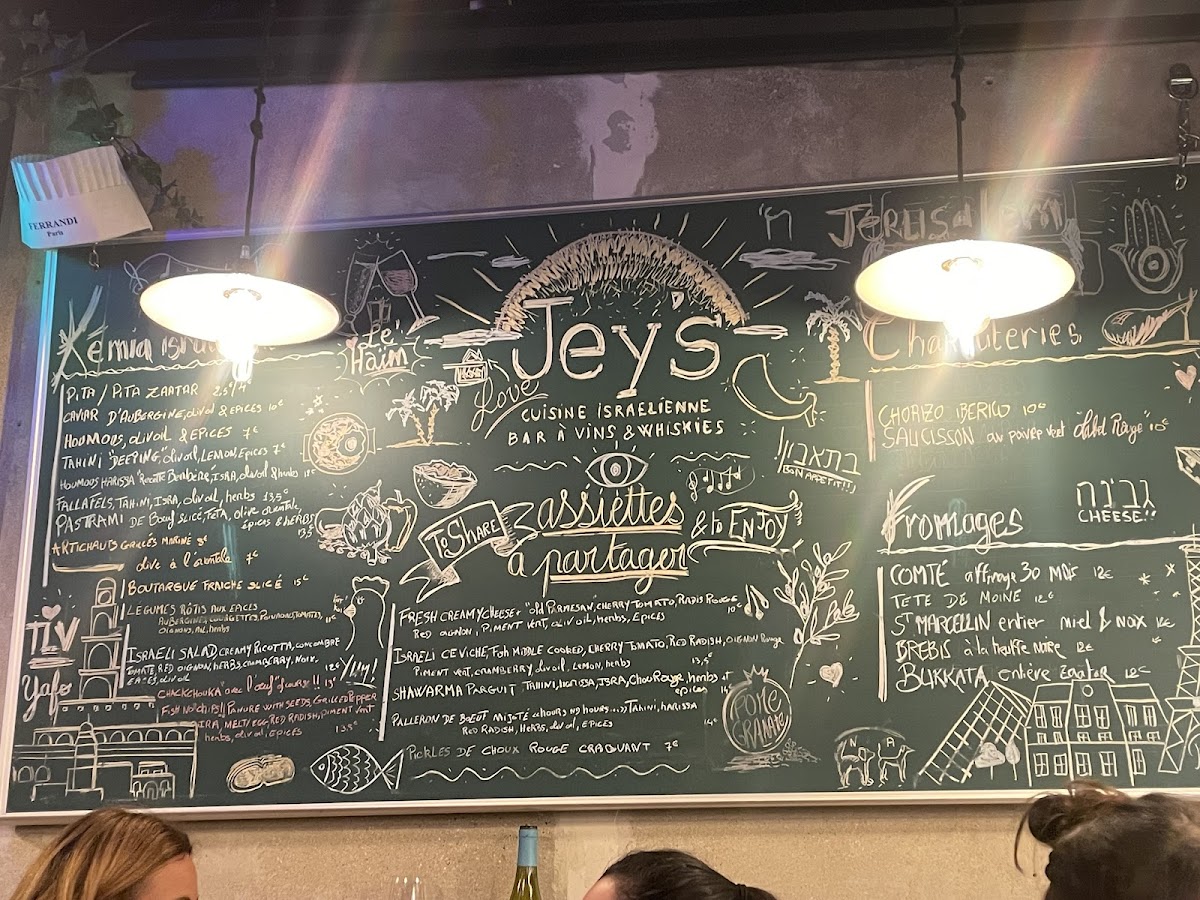 FERRANDI
Paris
Jerusalem
Kemia
Le'
Haim
Jey's
Love
CUISINE ISRAELIENNE
BAR À VINS & WHISKIES
PITA / PITA ZAATAR
CAVIAR D'AUBERGINE, olivoil & EPICES 10€
HOUMOUS, olivoil & EPICES 7€
TAHINI "DEEPING", olivoil, LEMON, EPICES 7€
HOUMOUS HARISSA Recette Berbère, ISRA, olivoil & herbs
FALLAFELS, TAHINI, ISRA, olivoil, herbs 13,5€
PASTRAMI DE Bœuf SLICÉ, FETA, olive orientale,
EPICES & HERBS
ARTICHAUTS GRILLÉS MARINÉ
olive à l'orientale 7€
BOUTARGUE FRAICHE SLICÉ 15€
LEGUMES RÔTIS AUX EPICES
AUBERGINES, COURGETTES, POIVRONS, TOMATES,
OIGNONS, AIL, herbs
ISRAELI SALAD, CREAMY RICOTTA, CONCOMBRE
TOMATE, RED OIGNON, HERBS, CRAMBERRY, NOIX,
EPICES, olivoil 12€
CHACKCHOUKA" avec l'œuf !! 13€
PANURE WITH SEEDS, GRILLED PEPPER
ISRA, MELTY EGG, RED RADISH, PIMENT VERT
herbs, olivoil, EPICES 13,5€
TLV
Yafo
To SHARE
assiettes
& to ENJOY
à partager
בתאבון!!
BON APPETIT!!
FRESH CREAMY CHEESE "OLD PARMESAN", CHERRY TOMATO, RADIS ROUGE
RED OIGNON, PIMENT VERT, olivoil, herbs, EPICES 10€
ISRAELI CEVICHE, FISH MIDDLE COOKED, CHERRY TOMATO, RED RADISH, OIGNON Rouge
PIMENT VERT, CRAMBERRY, olivoil, LEMON, herbs 13,5€
SHAWARMA PARGUIT TAHINI, HARISSA, ISRA, CHOU Rouge, herbs et
epices 14€
PALLERON DE BOEUF MIJOTÉ TAHINI, HARISSA
RED RADISH, HERBS, olivoil, EPICES 14€
PICKLES DE CHOUX ROUGE CRAQUANT 7€
POME
GRANATE
Charcuteries
CHORIZO IBERICO 10€
SAUCISSON au poivre vert "Label Rouge" 10€
גבינה
CHEESE!!
Fromages
COMTÉ affinage 30 MOIS 12€
TETE DE MOINE 12€
ST MARCELLIN entier miel & noix
BREBIS à la truffe noire 12€
BURRATA entière Zaatar 12€